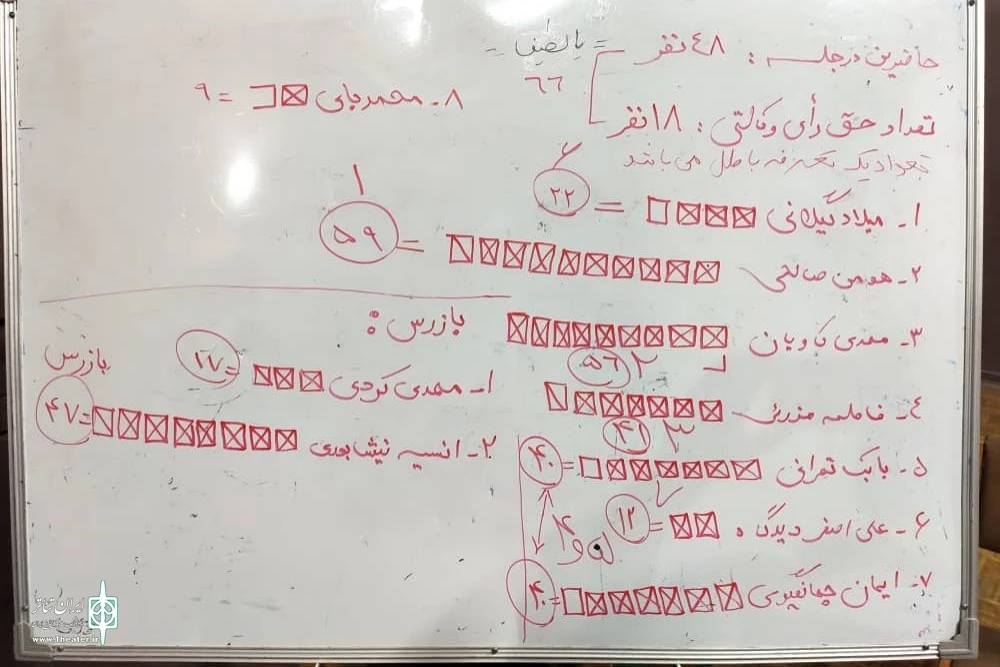 حاضرین در جلسه : ٤٨ نفر
٦٦
تعداد حق رأی وکالتی : ۱۸ نفر
تعداد یک تعرفه باطل می باشد
۸- محمد بابای = ۹
۱- میلاد گیلانی = ۲۲ ۶
۲- هومن صالحی = ۵۹ ۱
۳- مهدی کاویان ۵۶ ۲
٤- فاطمه ۴۱ ۳
۵- بابک تهرانی = ۴۰
۶- علی اصغر دیدگاه = ۱۲ ۷
۴ و ۵
۷- ایمان جهانگیری = ۴۰
بازرس :
۱- مهدی کردی = ۱۷
۲- انسیه نیشابوری = ۴۷
بازرس
ایران تئاتر
www.theater.ir